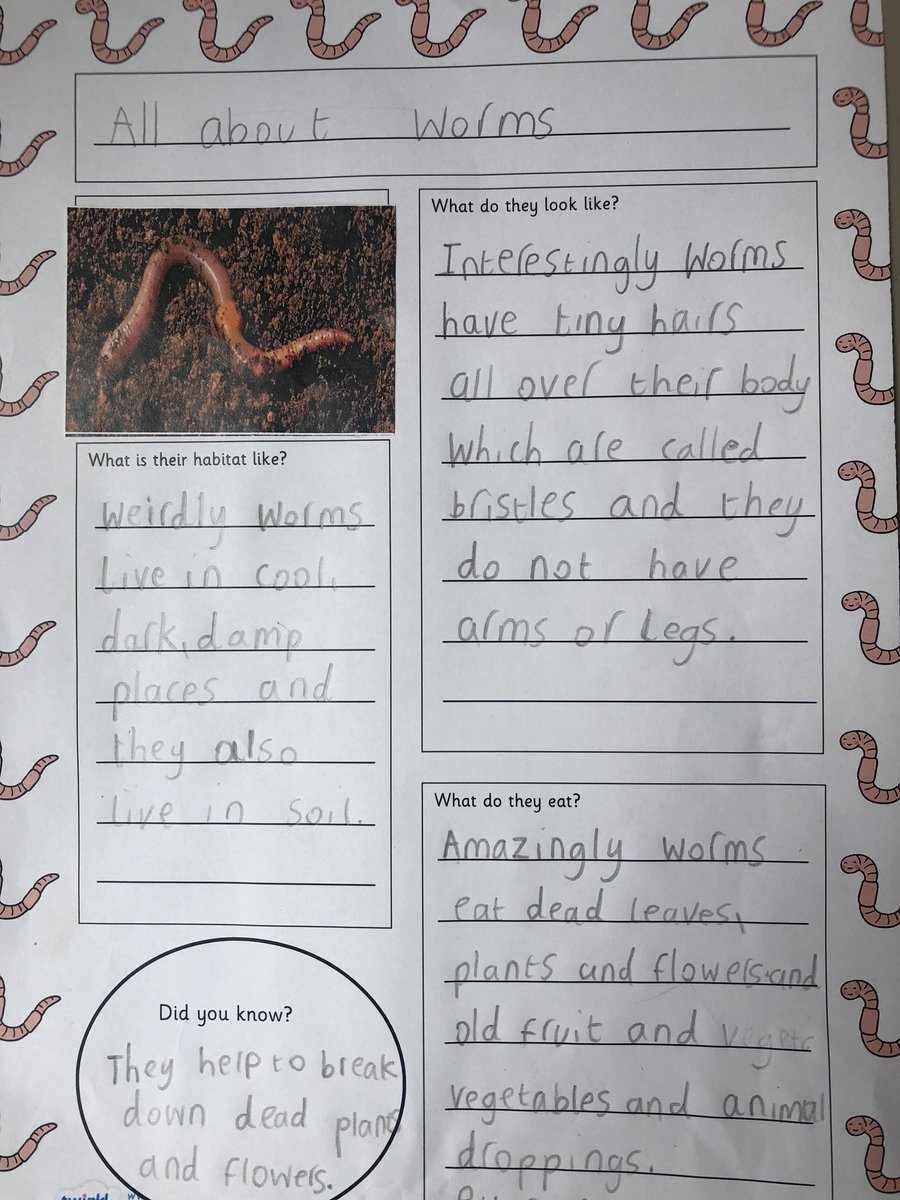 All about Worms
What do they look like?
Interestingly Worms
have tiny hairs
all over their body
which are called
bristles and they
do not have
arms or Legs.
What is their habitat like?
Weirdly Worms
Live in cool,
dark, damp
places and
they also
live in soil.
What do they eat?
Amazingly worms
eat dead leaves,
plants and flowers.and
old fruit and
vegetables and animal
droppings.
Did you know?
They help to break
down dead plants
and flowers.
twinkl